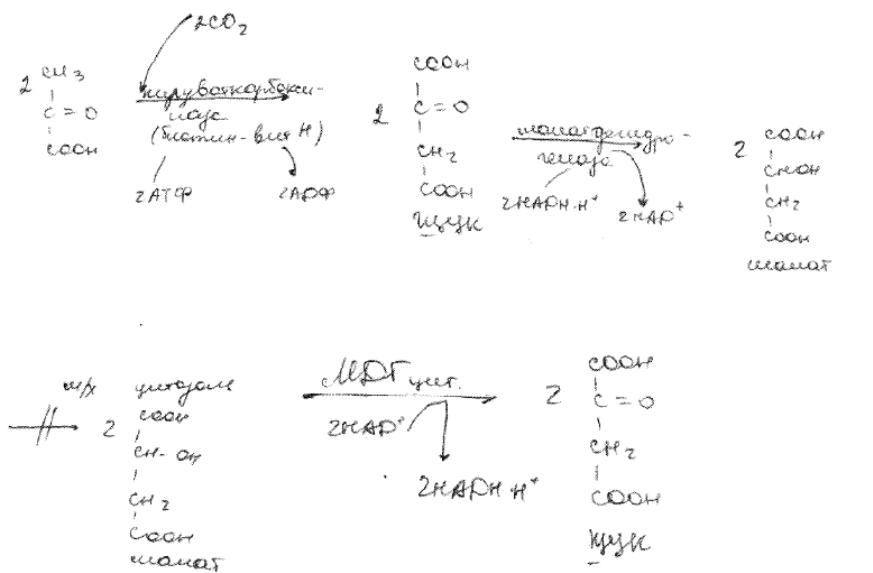 2CO2
2 CH3
C=O
COOH
пируваткарбокси-
лаза
(биотин-вит H)
2АТФ
2АДФ
2
COOH
C=O
CH2
COOH
ЩУК
малатдегидро-
геназа
2НАДН·Н+
2НАД+
2
COOH
CHOH
CH2
COOH
малат
м/х
цитозоль
2
COOH
CH-OH
CH2
COOH
малат
МДГ цит.
2НАД+
2НАДН·Н+
2
COOH
C=O
CH2
COOH
ЩУК